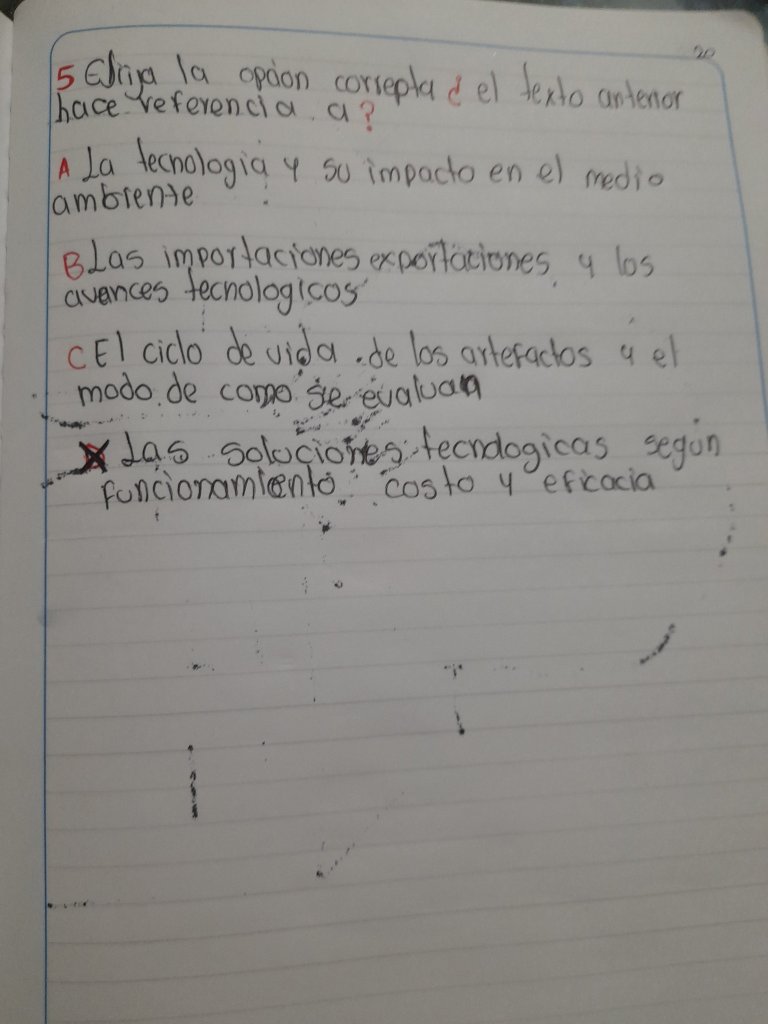 20
5 Elija la opcion correpta ¿ el texto anterior
hace referencia a?
A La tecnologia y su impacto en el medio
ambiente
B Las importaciones exportaciones y los
avances tecnologicos
C El ciclo de vida de los artefactos y el
modo de como se evaluan
Las soluciones tecnologicas según
funcionamiento costo y eficacia